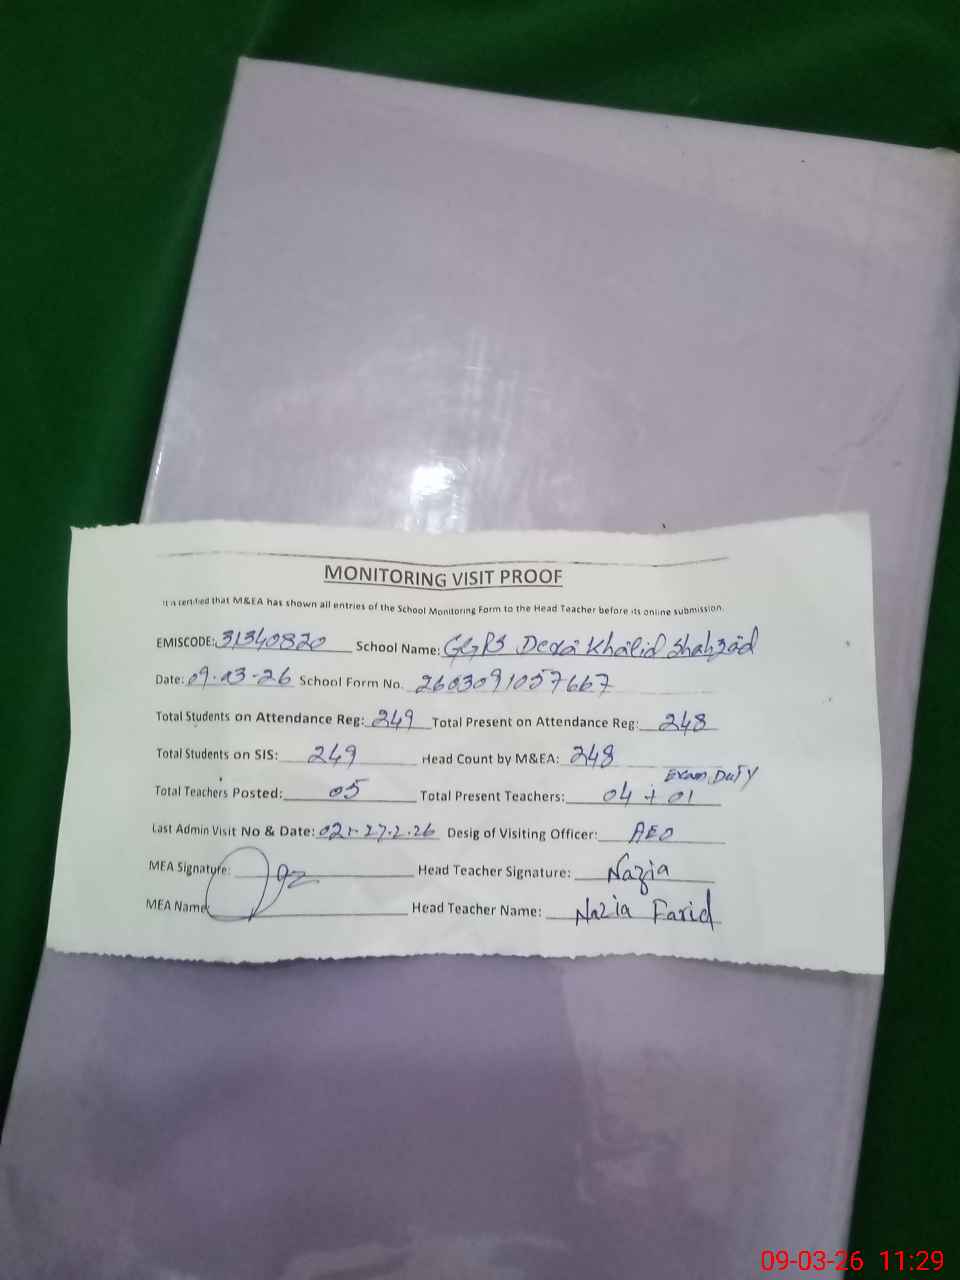 MONITORING VISIT PROOF
It is certified that M&EA has shown all entries of the School Monitoring Form to the Head Teacher before its online submission.
EMISCODE: 31340820 School Name: GGPS Dera Khalid Shahzad
Date: 09.03-26 School Form No. 2603091057667
Total Students on Attendance Reg: 249 Total Present on Attendance Reg: 248
Total Students on SIS: 249 Head Count by M&EA: 248
Exam Duty
Total Teachers Posted: 05 Total Present Teachers: 04 + 01
Last Admin Visit No & Date: 27.2.26 Desig of Visiting Officer: AEO
MEA Signature: Head Teacher Signature: Nazia
MEA Name: Head Teacher Name: Nazia Farid
09-03-26 11:29